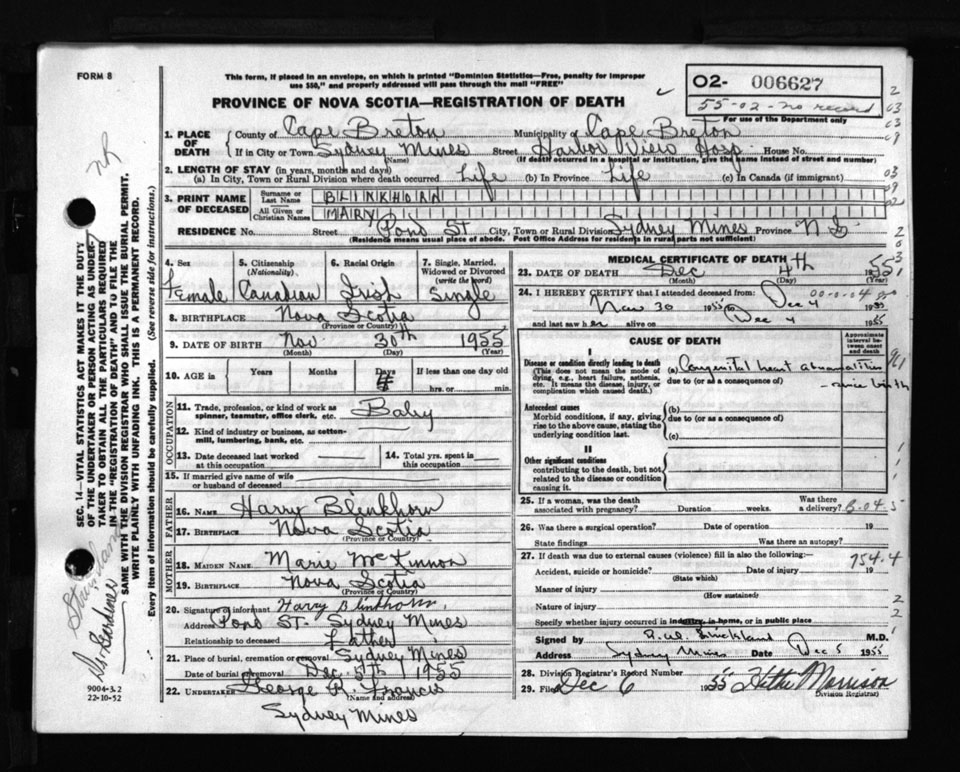 FORM 8
This form, if placed in an envelope, on which is printed "Dominion Statistics—Free, penalty for improper
use $50," and properly addressed will pass through the mail "FREE"
PROVINCE OF NOVA SCOTIA—REGISTRATION OF DEATH
O2- 006627
55-02-no record
For use of the Department only
1. PLACE OF DEATH
County of Cape Breton Municipality of Cape Breton
If in City or Town Sydney Mines Street Harbor View Hosp House No.
(Name) (If death occurred in a hospital or institution, give the name instead of street and number)
2. LENGTH OF STAY (in years, months and days)
(a) In City, Town or Rural Division where death occurred Life (b) In Province Life (c) In Canada (if immigrant)
3. PRINT NAME OF DECEASED
Surname or Last Name BLINKHORN
All Given or Christian Names MARY
RESIDENCE No. Street Pond St City, Town or Rural Division Sydney Mines Province N S
(Residence means usual place of abode. Post Office Address for residents in rural parts not sufficient)
4. Sex Female
5. Citizenship (Nationality) Canadian
6. Racial Origin Irish
7. Single, Married, Widowed or Divorced (write the word) Single
8. BIRTHPLACE Nova Scotia
(Province or Country)
9. DATE OF BIRTH Nov 30th 1955
(Month) (Day) (Year)
10. AGE in Years Months Days 4 If less than one day old
hrs. or min.
OCCUPATION
11. Trade, profession, or kind of work as spinner, teamster, office clerk, etc. Baby
12. Kind of industry or business, as cotton-mill, lumbering, bank, etc.
13. Date deceased last worked at this occupation
14. Total yrs. spent in this occupation
15. If married give name of wife or husband of deceased
FATHER
16. NAME Harry Blinkhorn
17. BIRTHPLACE Nova Scotia
(Province or Country)
MOTHER
18. MAIDEN NAME Marie McKinnon
19. BIRTHPLACE Nova Scotia
(Province or Country)
20. Signature of informant Harry Blinkhorn
Address Pond ST. Sydney Mines
Relationship to deceased Father
21. Place of burial, cremation or removal Sydney Mines
Date of burial or removal Dec. 5th 1955
22. UNDERTAKER George R. Francis
(Name and address)
Sydney Mines
MEDICAL CERTIFICATE OF DEATH
23. DATE OF DEATH Dec 4th 1955
(Month) (Day)
24. I HEREBY CERTIFY that I attended deceased from:
Nov 30 1955 to Dec 4 1955
and last saw her alive on Dec 4 1955
CAUSE OF DEATH
Approximate interval between onset and death
I
Disease or condition directly leading to death
(This does not mean the mode of dying, e.g., heart failure, asthenia, etc. It means the disease, injury, or complication which caused death.)
(a) Congenital heart abnormalities
due to (or as a consequence of) since birth
Antecedent causes
Morbid conditions, if any, giving rise to the above cause, stating the underlying condition last.
(b)
due to (or as a consequence of)
(c)
II
Other significant conditions
contributing to the death, but not related to the disease or condition causing it.
25. If a woman, was the death associated with pregnancy? Duration weeks. Was there a delivery?
26. Was there a surgical operation? Date of operation 19
State findings Was there an autopsy?
27. If death was due to external causes (violence) fill in also the following:
754.4
Accident, suicide or homicide? Date of injury 19
(State which)
Manner of injury
(How sustained)
Nature of injury
Specify whether injury occurred in industry, in home, or in public place
Signed by Strickland M.D.
Address Sydney Mines Date Dec 5 1955
28. Division Registrar's Record Number
29. Filed Dec 6 1955 Hattie Morrison
Division Registrar
SEC. 14—VITAL STATISTICS ACT MAKES IT THE DUTY
OF THE UNDERTAKER OR PERSON ACTING AS UNDER-
TAKER TO OBTAIN ALL THE PARTICULARS REQUIRED
IN THE "REGISTRATION OF DEATH" AND TO FILE THE
SAME WITH THE DIVISION REGISTRAR WHO SHALL ISSUE THE BURIAL PERMIT.
WRITE PLAINLY WITH UNFADING INK. THIS IS A PERMANENT RECORD.
Every item of information should be carefully supplied. (See reverse side for instructions.)
9004-3.2
22-10-52